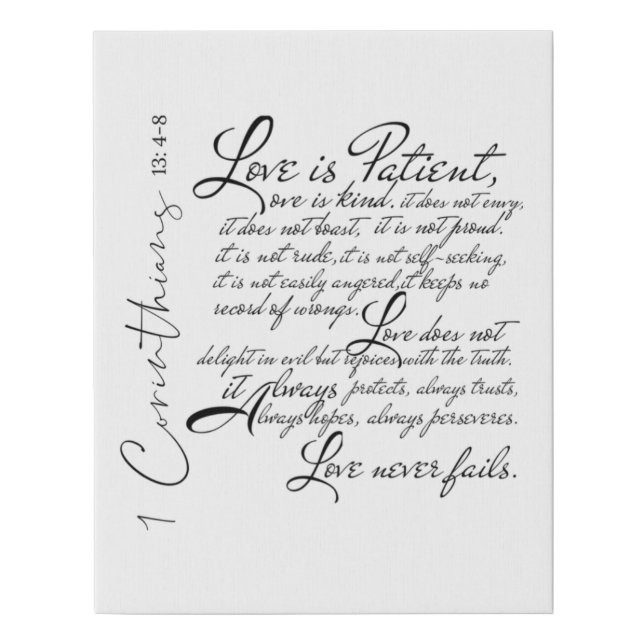 1 Corinthians 13: 4-8
Love is Patient,
Love is kind. it does not envy,
it does not boast, it is not proud.
it is not rude, it is not self-seeking,
it is not easily angered, it keeps no
record of wrongs. Love does not
delight in evil but rejoices with the truth.
it Always protects, always trusts,
Always hopes, always perseveres.
Love never fails.